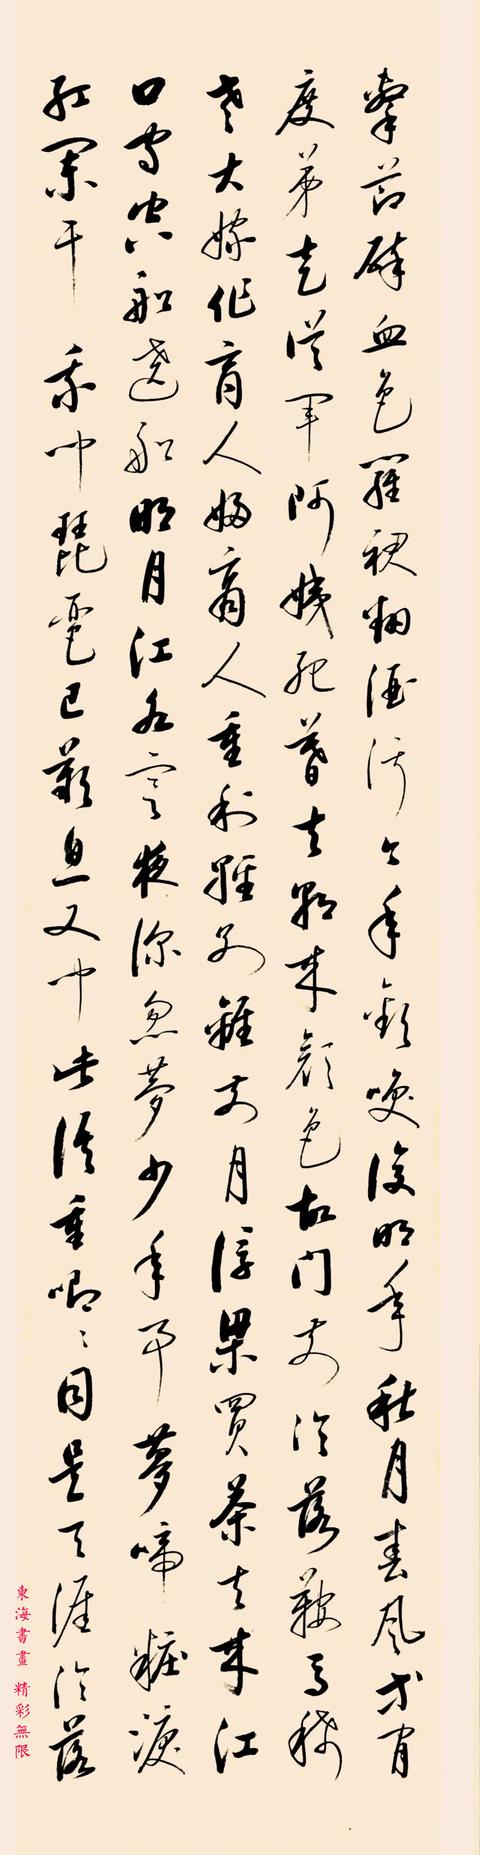 擊節碎血色羅裙翻酒污今年歡咲復明年秋月春風等閒
度弟走從軍阿姨死暮去朝來顏色故門前冷落鞍馬稀
老大嫁作商人婦商人重利輕別離前月浮梁買茶去來江
口守空船遶船明月江水寒夜深忽夢少年事夢啼粧淚
紅闌干我聞琵琶已歎息又聞此語重唧〻同是天涯冷落
東海書畫 精彩無限